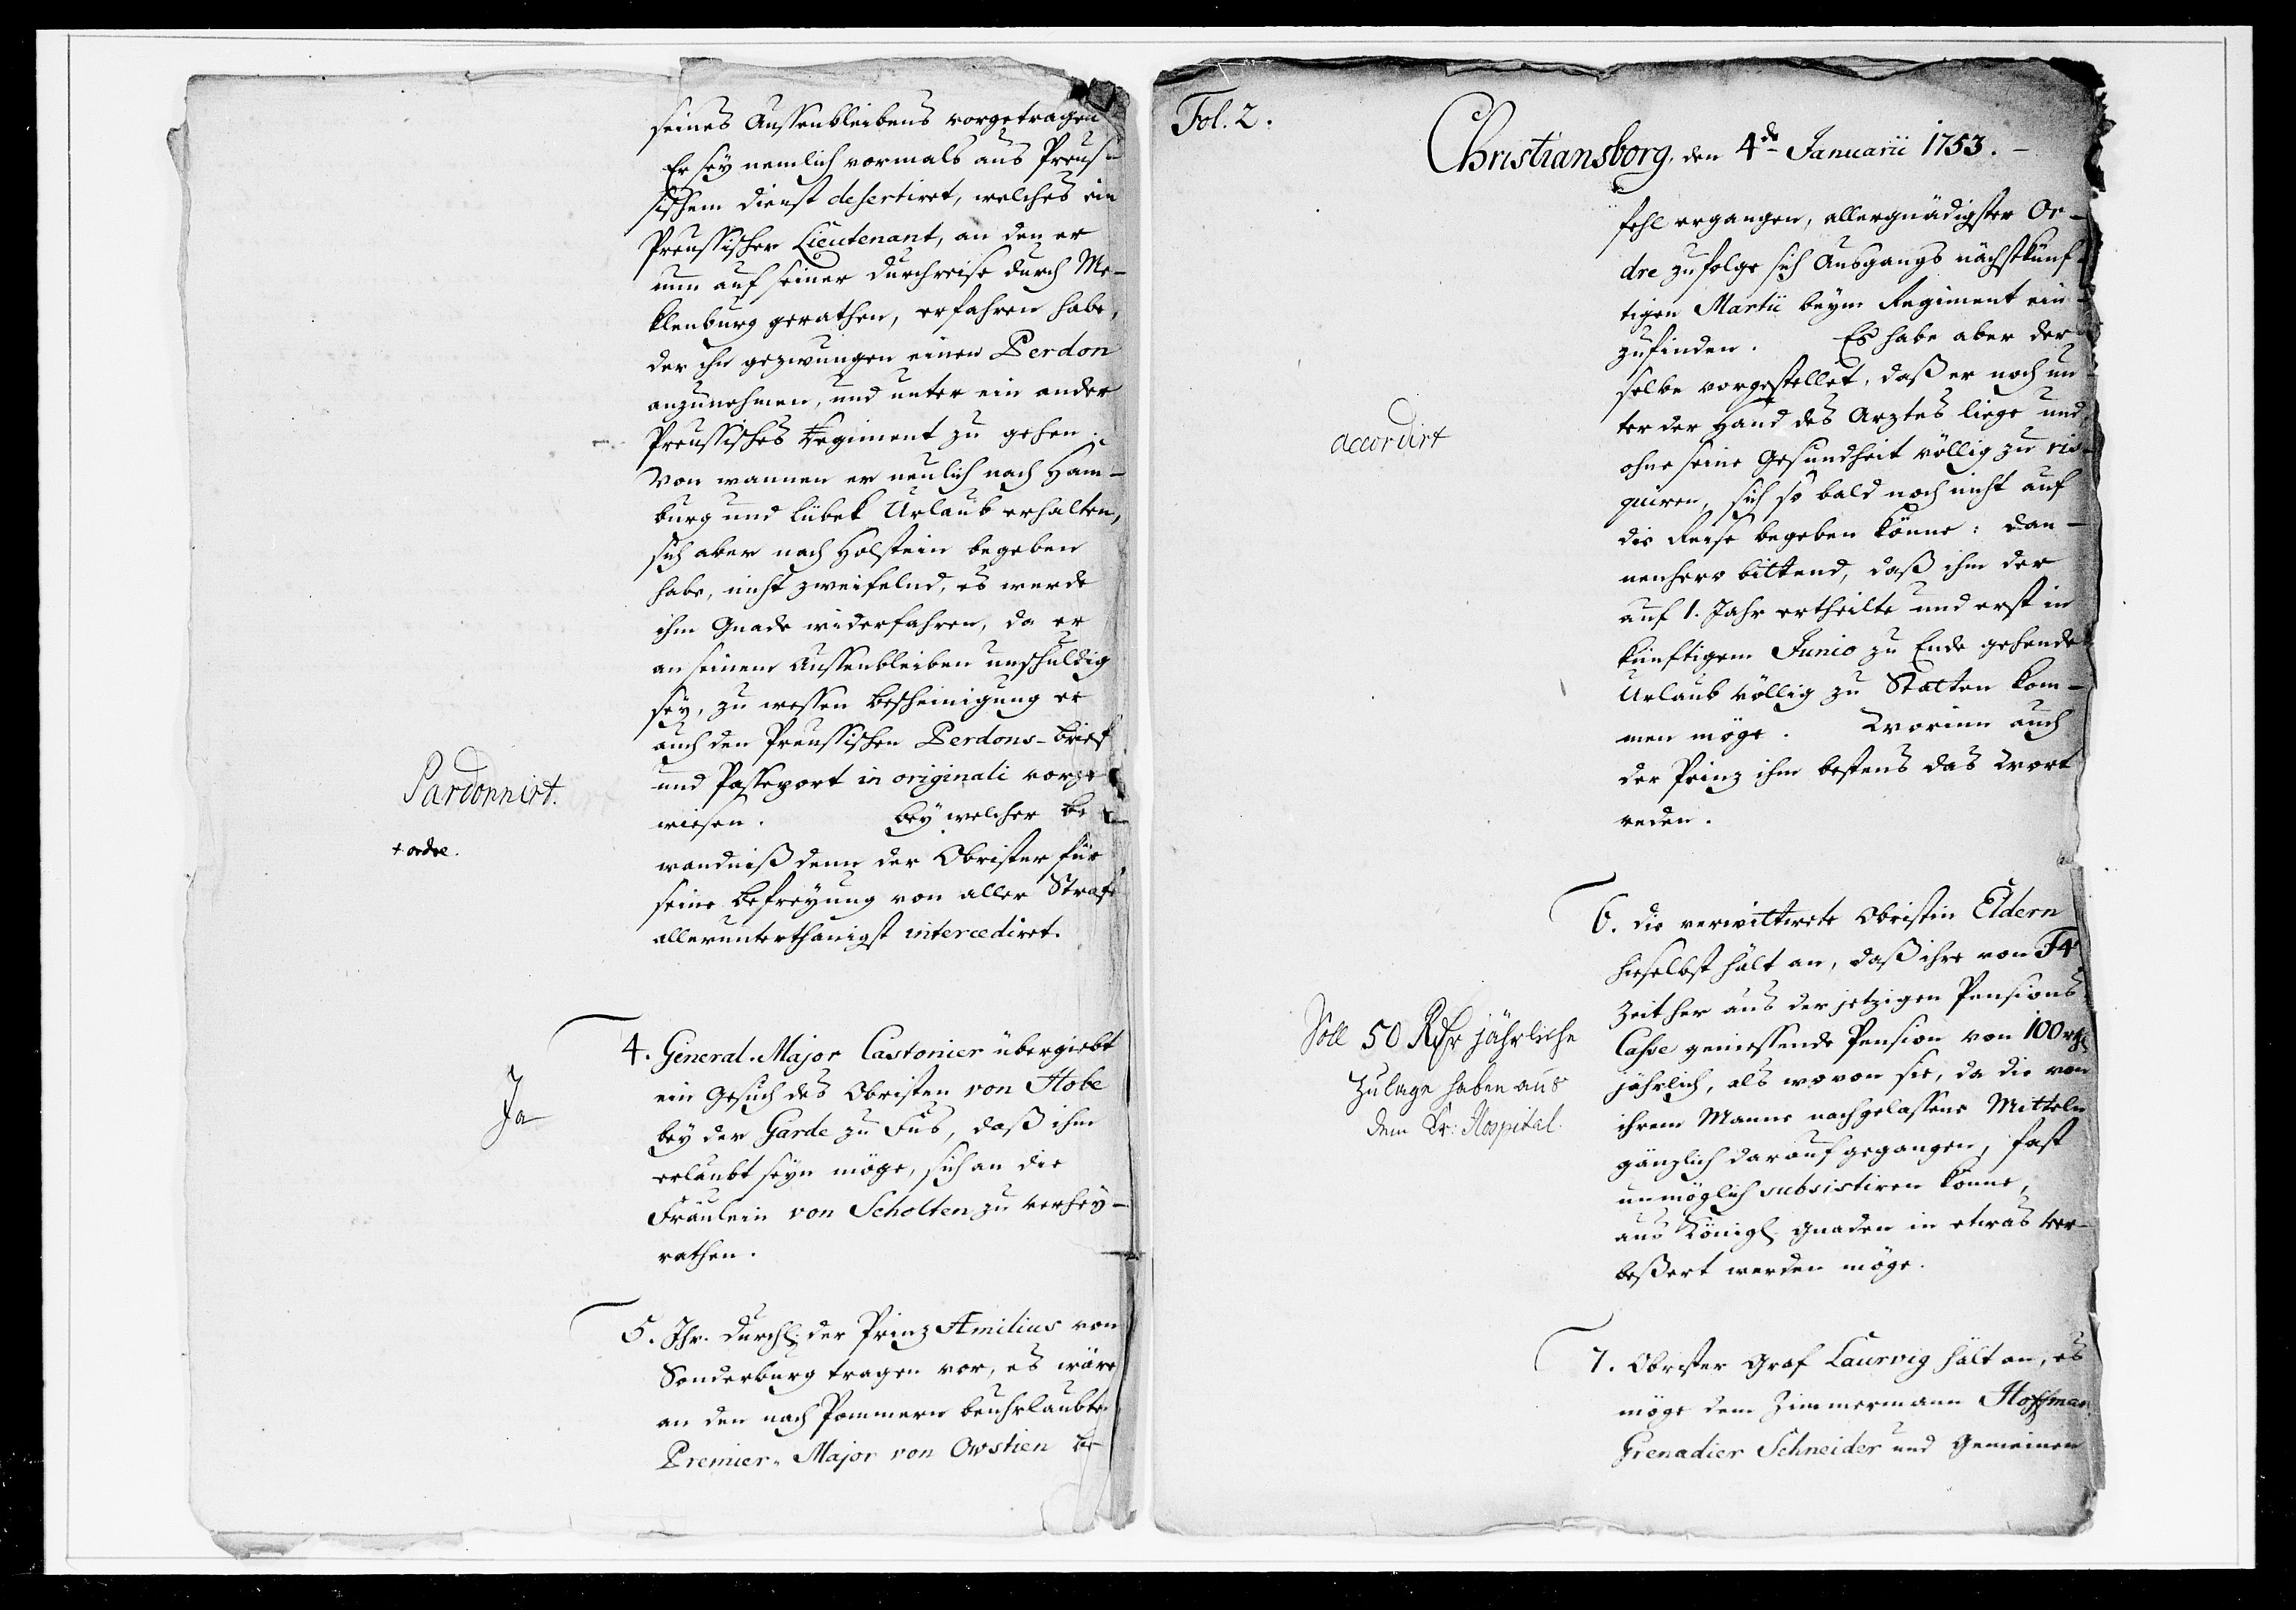 seines Aussenbleibens vorgetragen
Er sey nemlich vormals aus Preus-
sischem dienst desertiret, welches ein
Preussischer Lieutenant, an den er
nun auf seiner durchreise durch Me-
klenburg gerathen, erfahren habe,
der ihn gezwungen einen Perdon
anzunehmen, und unter ein ander
Preussisches Regiment zu gehen.
Von wannen er neulich nach Ham-
burg und Lübek Urlaub erhalten,
sich aber nach Holstein begeben
habe, nicht zweifelnd, es werde
ihm Gnade widerfahren, da er
an seinem Aussenbleiben unschuldig
sey, zu wessen Bescheinigung er
auch den Preussischen Perdons-brief
und Passeport in originali vorge
wiesen. Bey welcher be
wandniß denn der Obrister für
seine Befreyung von aller Strafe
allerunterthänigst intercediret.
Pardonnirt.
+ ordre.
4. General-Major Castonier übergiebt
ein Gesuch des Obristen von Hobe
bey der Garde zu Fus, daß ihm
erlaubt seyn möge, sich an die
Fräulein von Scholten zu verhey-
rathen.
Ja
5. Ihr. Durchl. der Prinz Æmilius von
Sonderburg tragen vor, es wäre
an den nach Pommern beuhrlaubten
Premier-Major von Owstien be
Fol. 2.
Christiansborg, den 4de Januarii 1753.
fehl ergangen, allergnädigster Or-
dre zufolge sich Ausgangs nächstkünf-
tigen Martii beym Regiment ein-
zufinden. Es habe aber der-
selbe vorgestellet, daß er noch un-
ter der Hand des Arztes liege und
ohne seine Gesundheit völlig zu ris-
quiren, sich so bald noch nicht auf
die Reise begeben könne: dan-
nenhero bittend, daß ihm der
auf 1. Jahr ertheilte und erst in
künftigem Junio zu Ende gehende
Urlaub völlig zu Statten kom-
men möge. Worinn auch
der Prinz ihm bestens das Wort
reden.
accordirt
6. die verwittwete Obristin Eldern
hieselbst hält an, daß ihre von
Zeit her aus der jetzigen Pensions
Casse geniessende Pension von 100 rthl
jährlich, als wovon sie, da die von
ihrem Manne nachgelassene Mitteln
gänzlich darauf gegangen, fast
unmöglich subsistiren könne,
aus Königl. Gnaden in etwas ver-
beßert werden möge.
Soll 50 Rdr jährliche
Zulage haben aus
dem Kr: Hospital.
7. Obrister Graf Laurvig hält an, es
möge dem Zimmermann Hoffman
Grenadier Schneider und Gemeinen